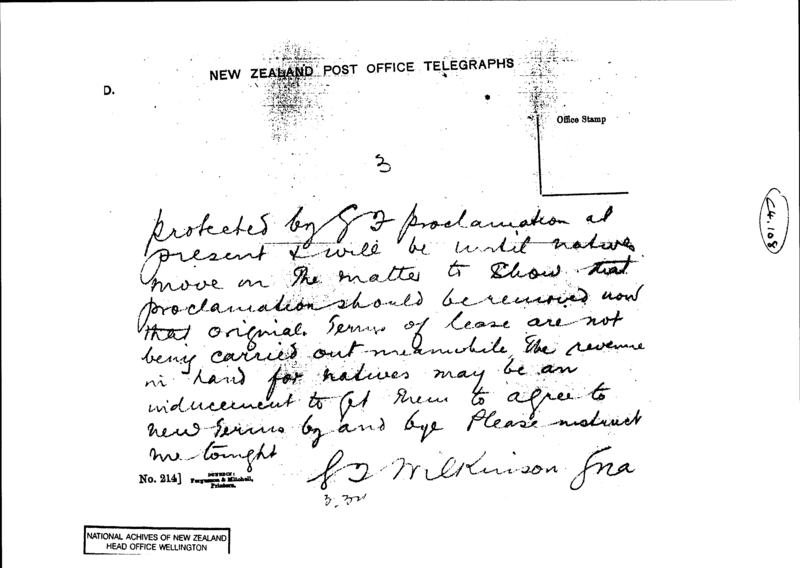 D.
NEW ZEALAND POST OFFICE TELEGRAPHS
Office Stamp
3
C4.108
protected by G F proclamation at
present & will be until natives
move in the matter to show that
proclamation should be removed now
that original terms of lease are not
being carried out meanwhile the revenue
in hand for natives may be an
inducement to get them to agree to
new terms by and bye Please instruct
me tonight
G T Wilkinson
No. 214]
DUNEDIN:
Fergusson & Mitchell,
Printers.
NATIONAL ACHIVES OF NEW ZEALAND
HEAD OFFICE WELLINGTON